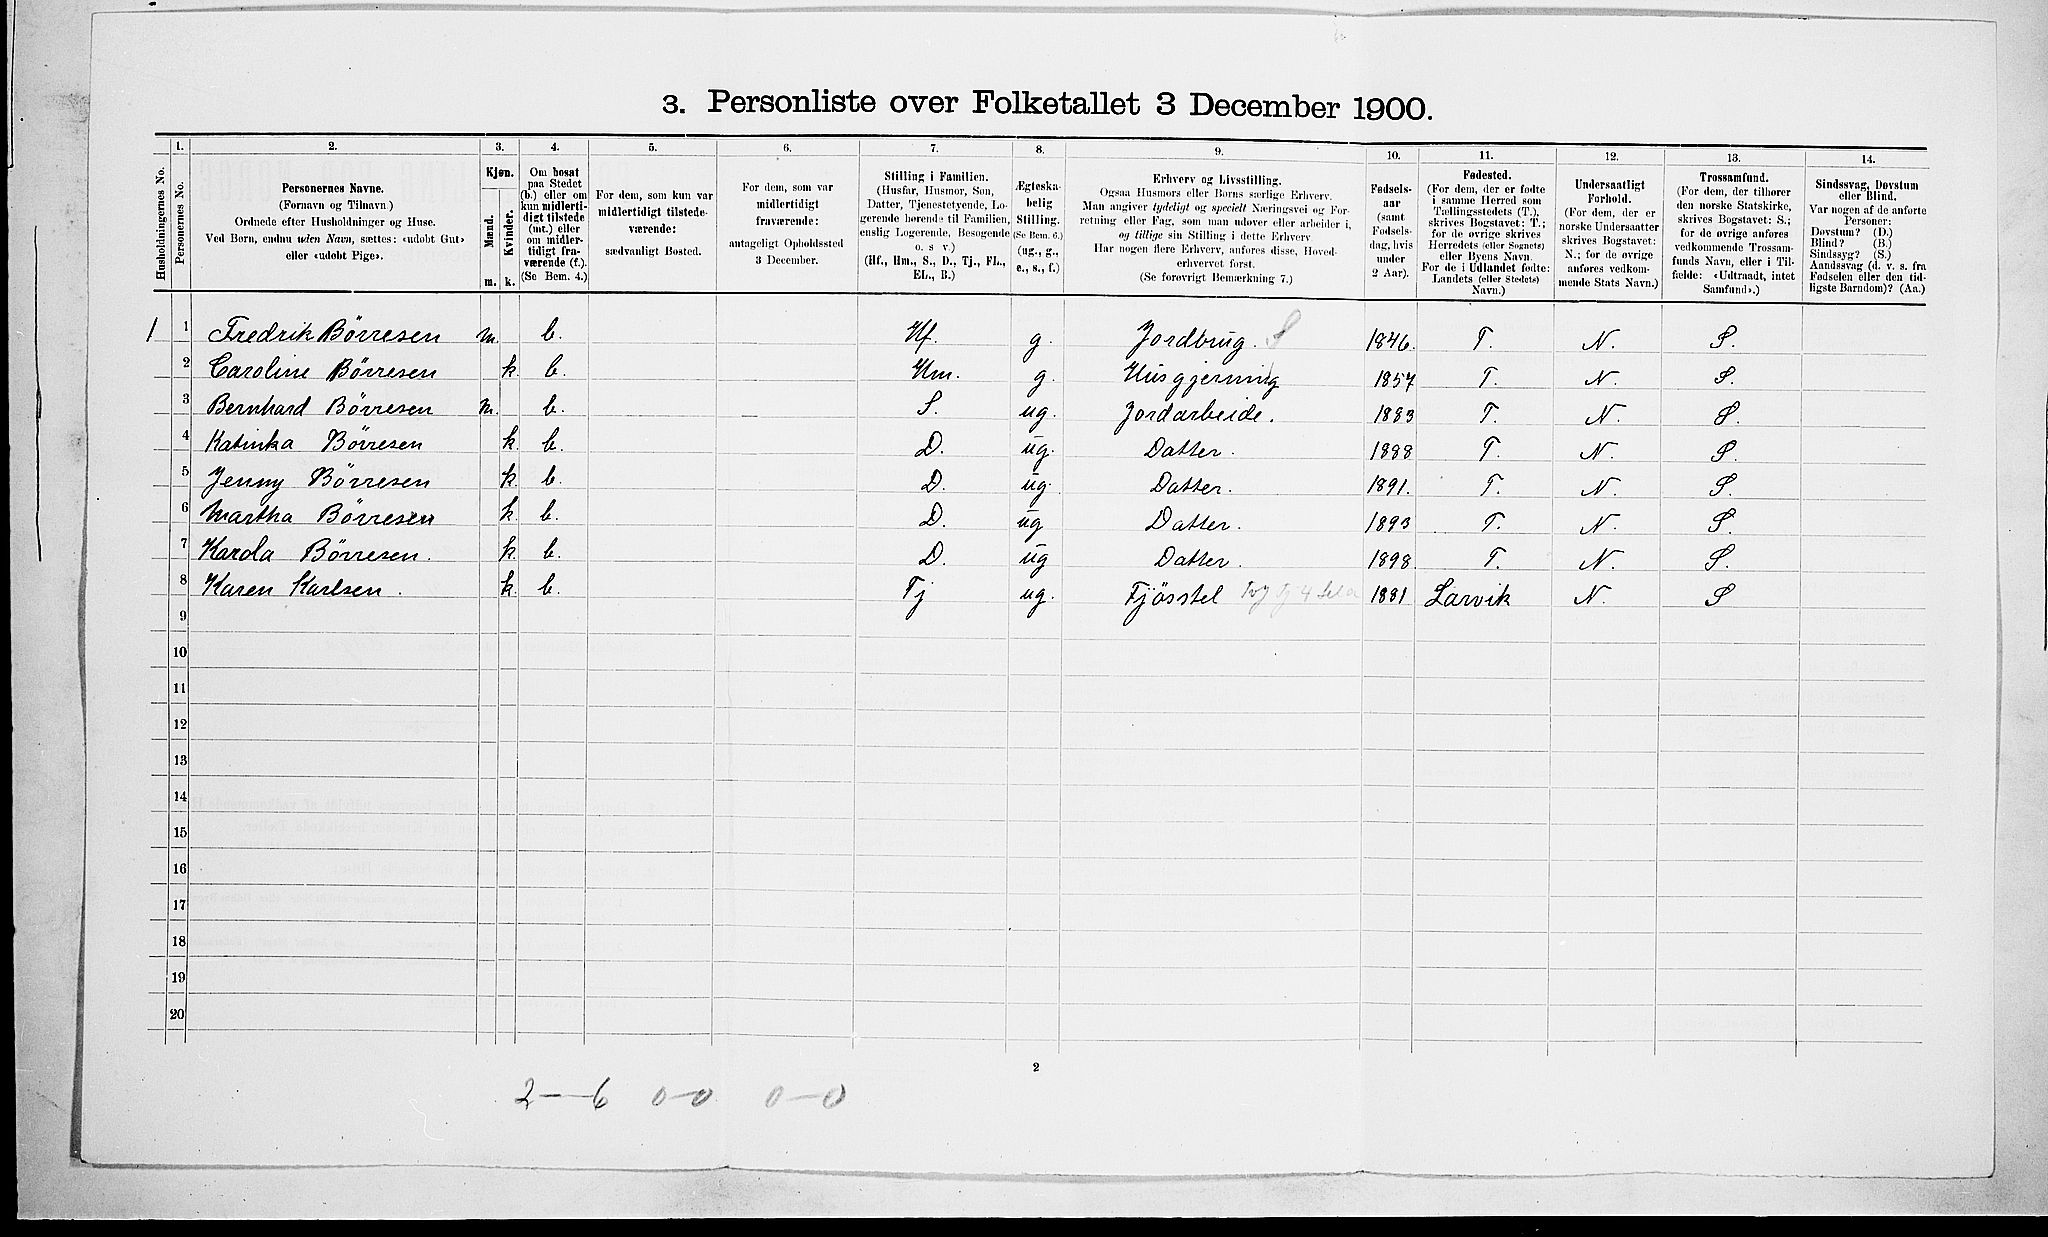 3. Personliste over Folketallet 3 December 1900.
Husholdningernes No.
1.
Personernes No.
2.
Personernes Navne.
(Fornavn og Tilnavn.)
Ordnede efter Husholdninger og Huse.
Ved Børn, endnu uden Navn, sættes: «udøbt Gut»
eller «udøbt Pige».
3.
Kjøn.
Mænd.
Kvinder.
m. k.
4.
Om bosat
paa Stedet
(b.) eller om
kun midlerti-
digt tilstede
(mt.) eller
om midler-
tidigt fra-
værende (f.).
(Se Bem. 4.)
5.
For dem, som kun var
midlertidigt tilstede-
værende:
sædvanligt Bosted.
6.
For dem, som var
midlertidigt
fraværende:
antageligt Opholdssted
3 December.
7.
Stilling i Familien.
(Husfar, Husmor, Søn,
Datter, Tjenestetyende, Lo-
gerende hørende til Familien,
enslig Logerende, Besøgende
o. s v.)
(Hf., Hm., S., D., Tj., FL.,
EL., B.)
8.
Ægteska-
belig
Stilling.
(Se Bem. 6.)
(ug., g.,
e., s., f.)
9.
Erhverv og Livsstilling.
Ogsaa Husmors eller Børns særlige Erhverv.
Man angiver tydeligt og specielt Næringsvei og For-
retning eller Fag, som man udøver eller arbeider i,
og tillige sin Stilling i dette Erhverv.
Har nogen flere Erhverv, anføres disse, Hoved-
erhvervet først.
(Se forøvrigt Bemærkning 7.)
10.
Fødsels-
aar
(samt
Fødsels-
dag, hvis
under
2 Aar).
11.
Fødested.
(For dem, der er fødte
i samme Herred som
Tællingsstedets (T.),
skrives Bogstavet: T.;
for de øvrige skrives
Herredets (eller Sognets)
eller Byens Navn.
For de i Udlandet fødte:
Landets (eller Stedets)
Navn.)
12.
Undersaatligt
Forhold.
(For dem, der er
norske Undersaatter
skrives Bogstavet:
N.; for de øvrige
anføres vedkom-
mende Stats Navn.)
13.
Trossamfund.
(For dem, der tilhører
den norske Statskirke,
skrives Bogstavet: S.;
for de øvrige anføres
vedkommende Trossam-
funds Navn, eller i Til-
fælde: «Udtraadt, intet
Samfund».)
14.
Sindssvag, Døvstum
eller Blind.
Var nogen af de anførte
Personer:
Døvstum? (D.)
Blind? (B.)
Sindssyg? (S.)
Aandssvag (d. v. s. fra
Fødselen eller den tid-
ligste Barndom)? (Aa.)
1 1 Fredrik Børresen m. b. Hf. g. Jordbrug. S 1846. T. N. S.
2 Caroline Børresen k. b. Hm. g. Husgjerning 1857 T. N. S.
3 Bernhard Børresen m. b. S. ug. Jordarbeide. 1883 T. N. S.
4 Katinka Børresen k. b. D. ug. Datter. 1888 T. N. S.
5 Jenny Børresen k. b. D. ug. Datter. 1891. T. N. S.
6 Martha Børresen k. b. D. ug Datter. 1893 T. N. S.
7 Karola Børresen. k. b. D. ug Datter. 1898. T. N. S.
8 Karen Karlsen. k. b. Tj ug. Fjøsstel 1881 Larvik N. S
9
10
11
12
13
14
15
16
17
18
19
20
2
2—6 0-0 0-0